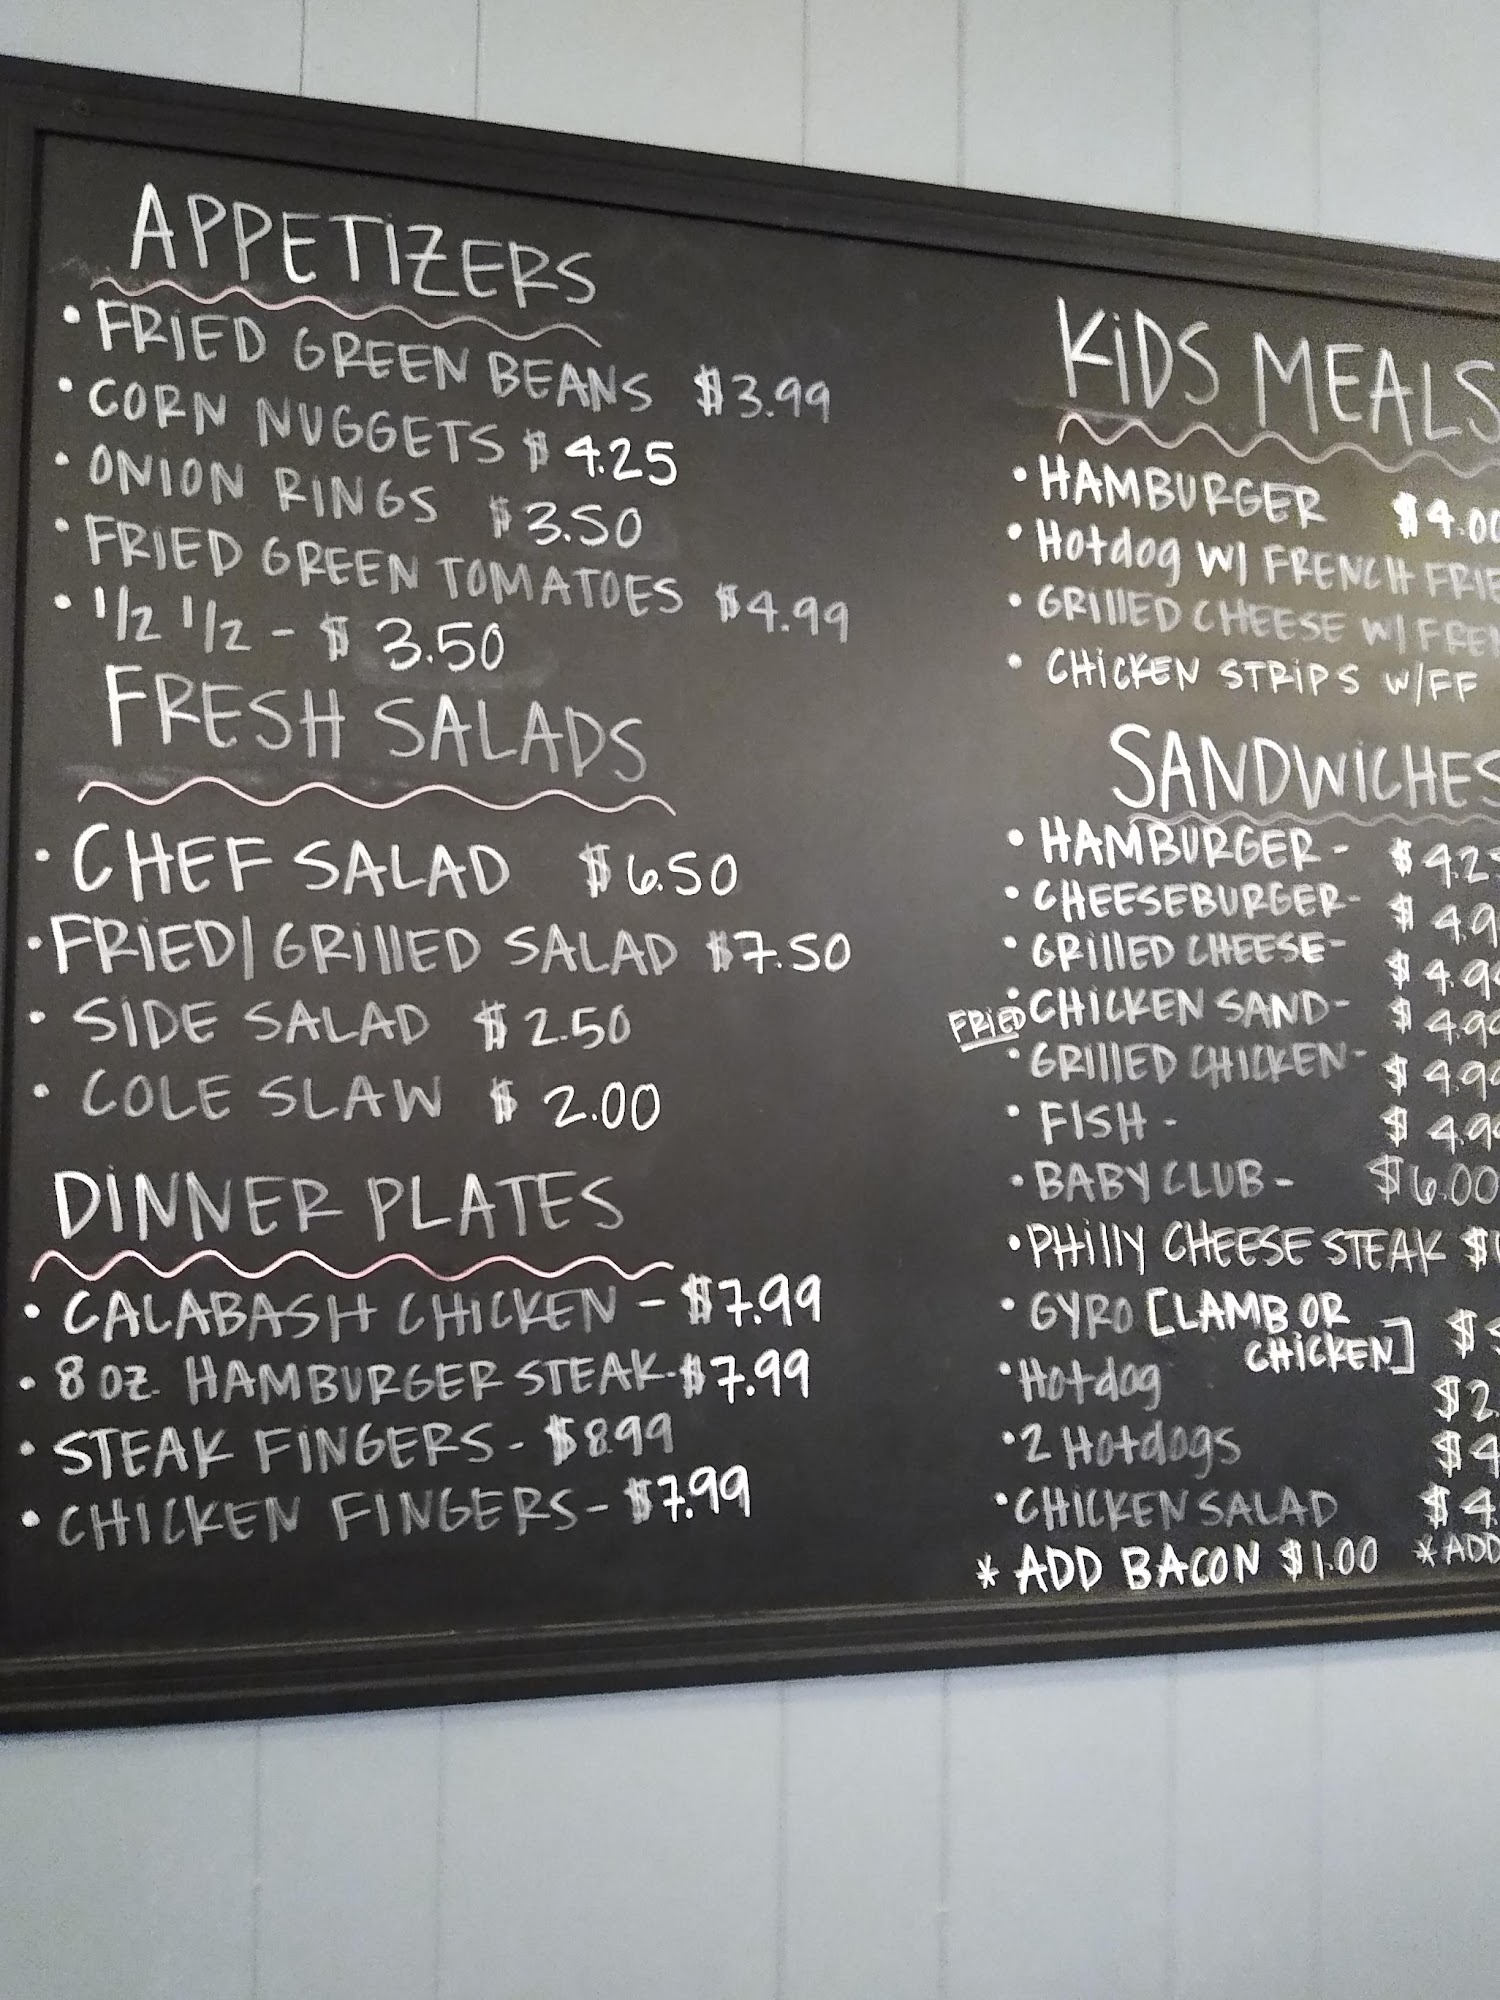 APPETIZERS
• FRIED GREEN BEANS $3.99
• CORN NUGGETS $4.25
• ONION RINGS $3.50
• FRIED GREEN TOMATOES $4.99
• 1/2 1/2 - $3.50
FRESH SALADS
• CHEF SALAD $6.50
• FRIED/GRILLED SALAD $7.50
• SIDE SALAD $2.50
• COLE SLAW $2.00
DINNER PLATES
• CALABASH CHICKEN - $7.99
• 8 OZ. HAMBURGER STEAK - $7.99
• STEAK FINGERS - $8.99
• CHICKEN FINGERS - $7.99
KIDS MEALS
• HAMBURGER $4.00
• Hotdog W/ FRENCH FRIE
• GRILLED CHEESE W/ FREN
• CHICKEN STRIPS W/FF
SANDWICHES
• HAMBURGER - $4.25
• CHEESEBURGER - $4.9
• GRILLED CHEESE - $4.99
• FRIED CHICKEN SAND - $4.99
• GRILLED CHICKEN - $4.99
• FISH - $4.99
• BABY CLUB - $6.00
• PHILLY CHEESE STEAK $
• GYRO [LAMB OR
CHICKEN] $
• Hotdog $2.
• 2 Hotdogs $4
• CHICKEN SALAD $4.
* ADD BACON $1.00 * ADD